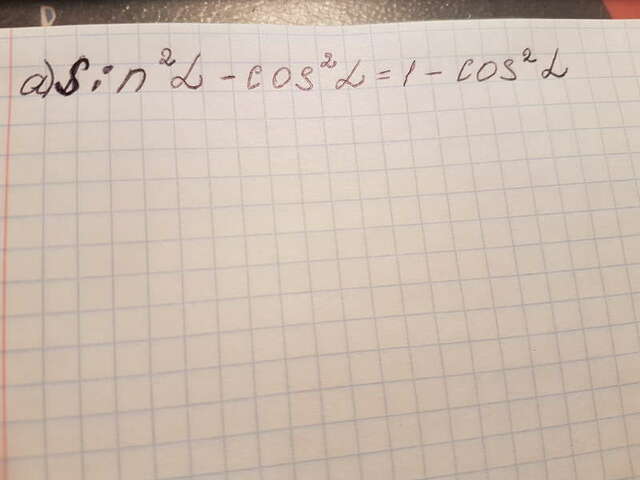 a) Sin²α - cos²α = 1 - cos²α